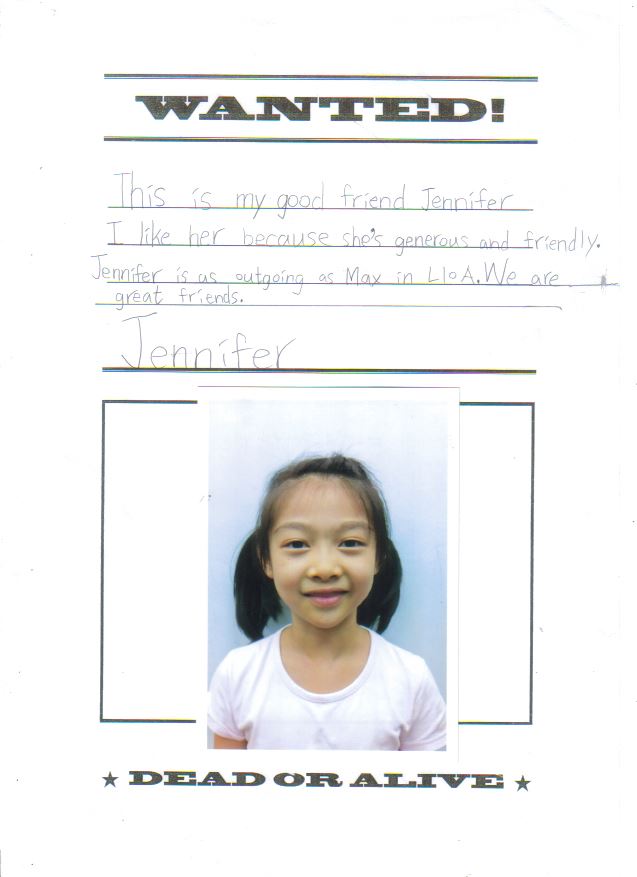 WANTED!
This is my good friend Jennifer
I like her because she's generous and friendly.
Jennifer is as outgoing as Max in L10A. We are
great friends.
Jennifer
★ DEAD OR ALIVE ★